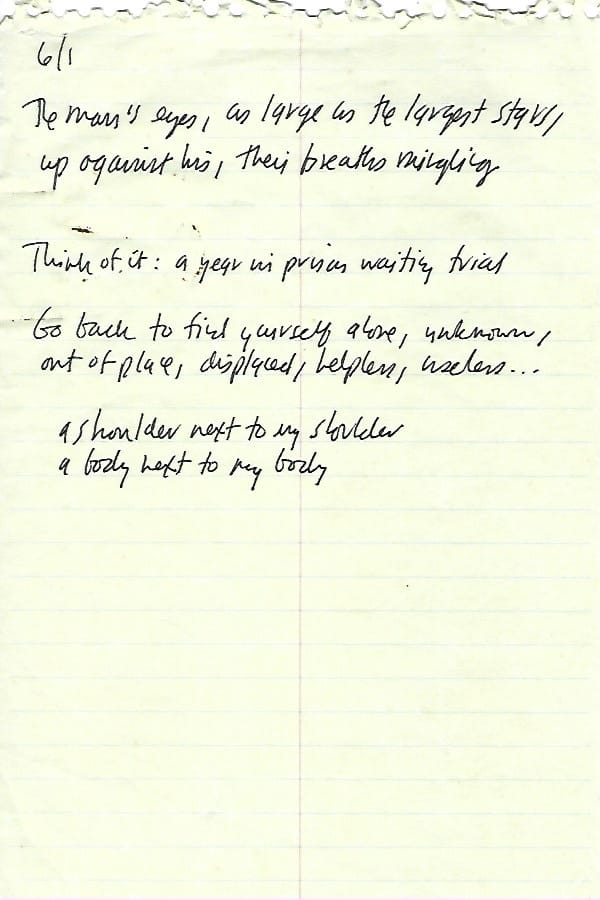 6/1
The man's eyes, as large as the largest stars,
up against his, their breaths mingling
Think of it: a year in prison waiting trial
Go back to find yourself alone, unknown,
out of place, displaced, helpless, useless...
a shoulder next to my shoulder
a body next to my body